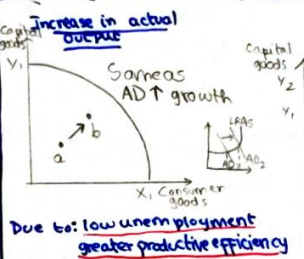 Increase in actual
output
Capital
goods
Y₁
Same as
AD ↑ growth
a
b
X₁ Consumer
goods
Capital
goods
Y₂
Y₁
LRAS
AD₁
AD₂
Due to: low unemployment
greater productive efficiency